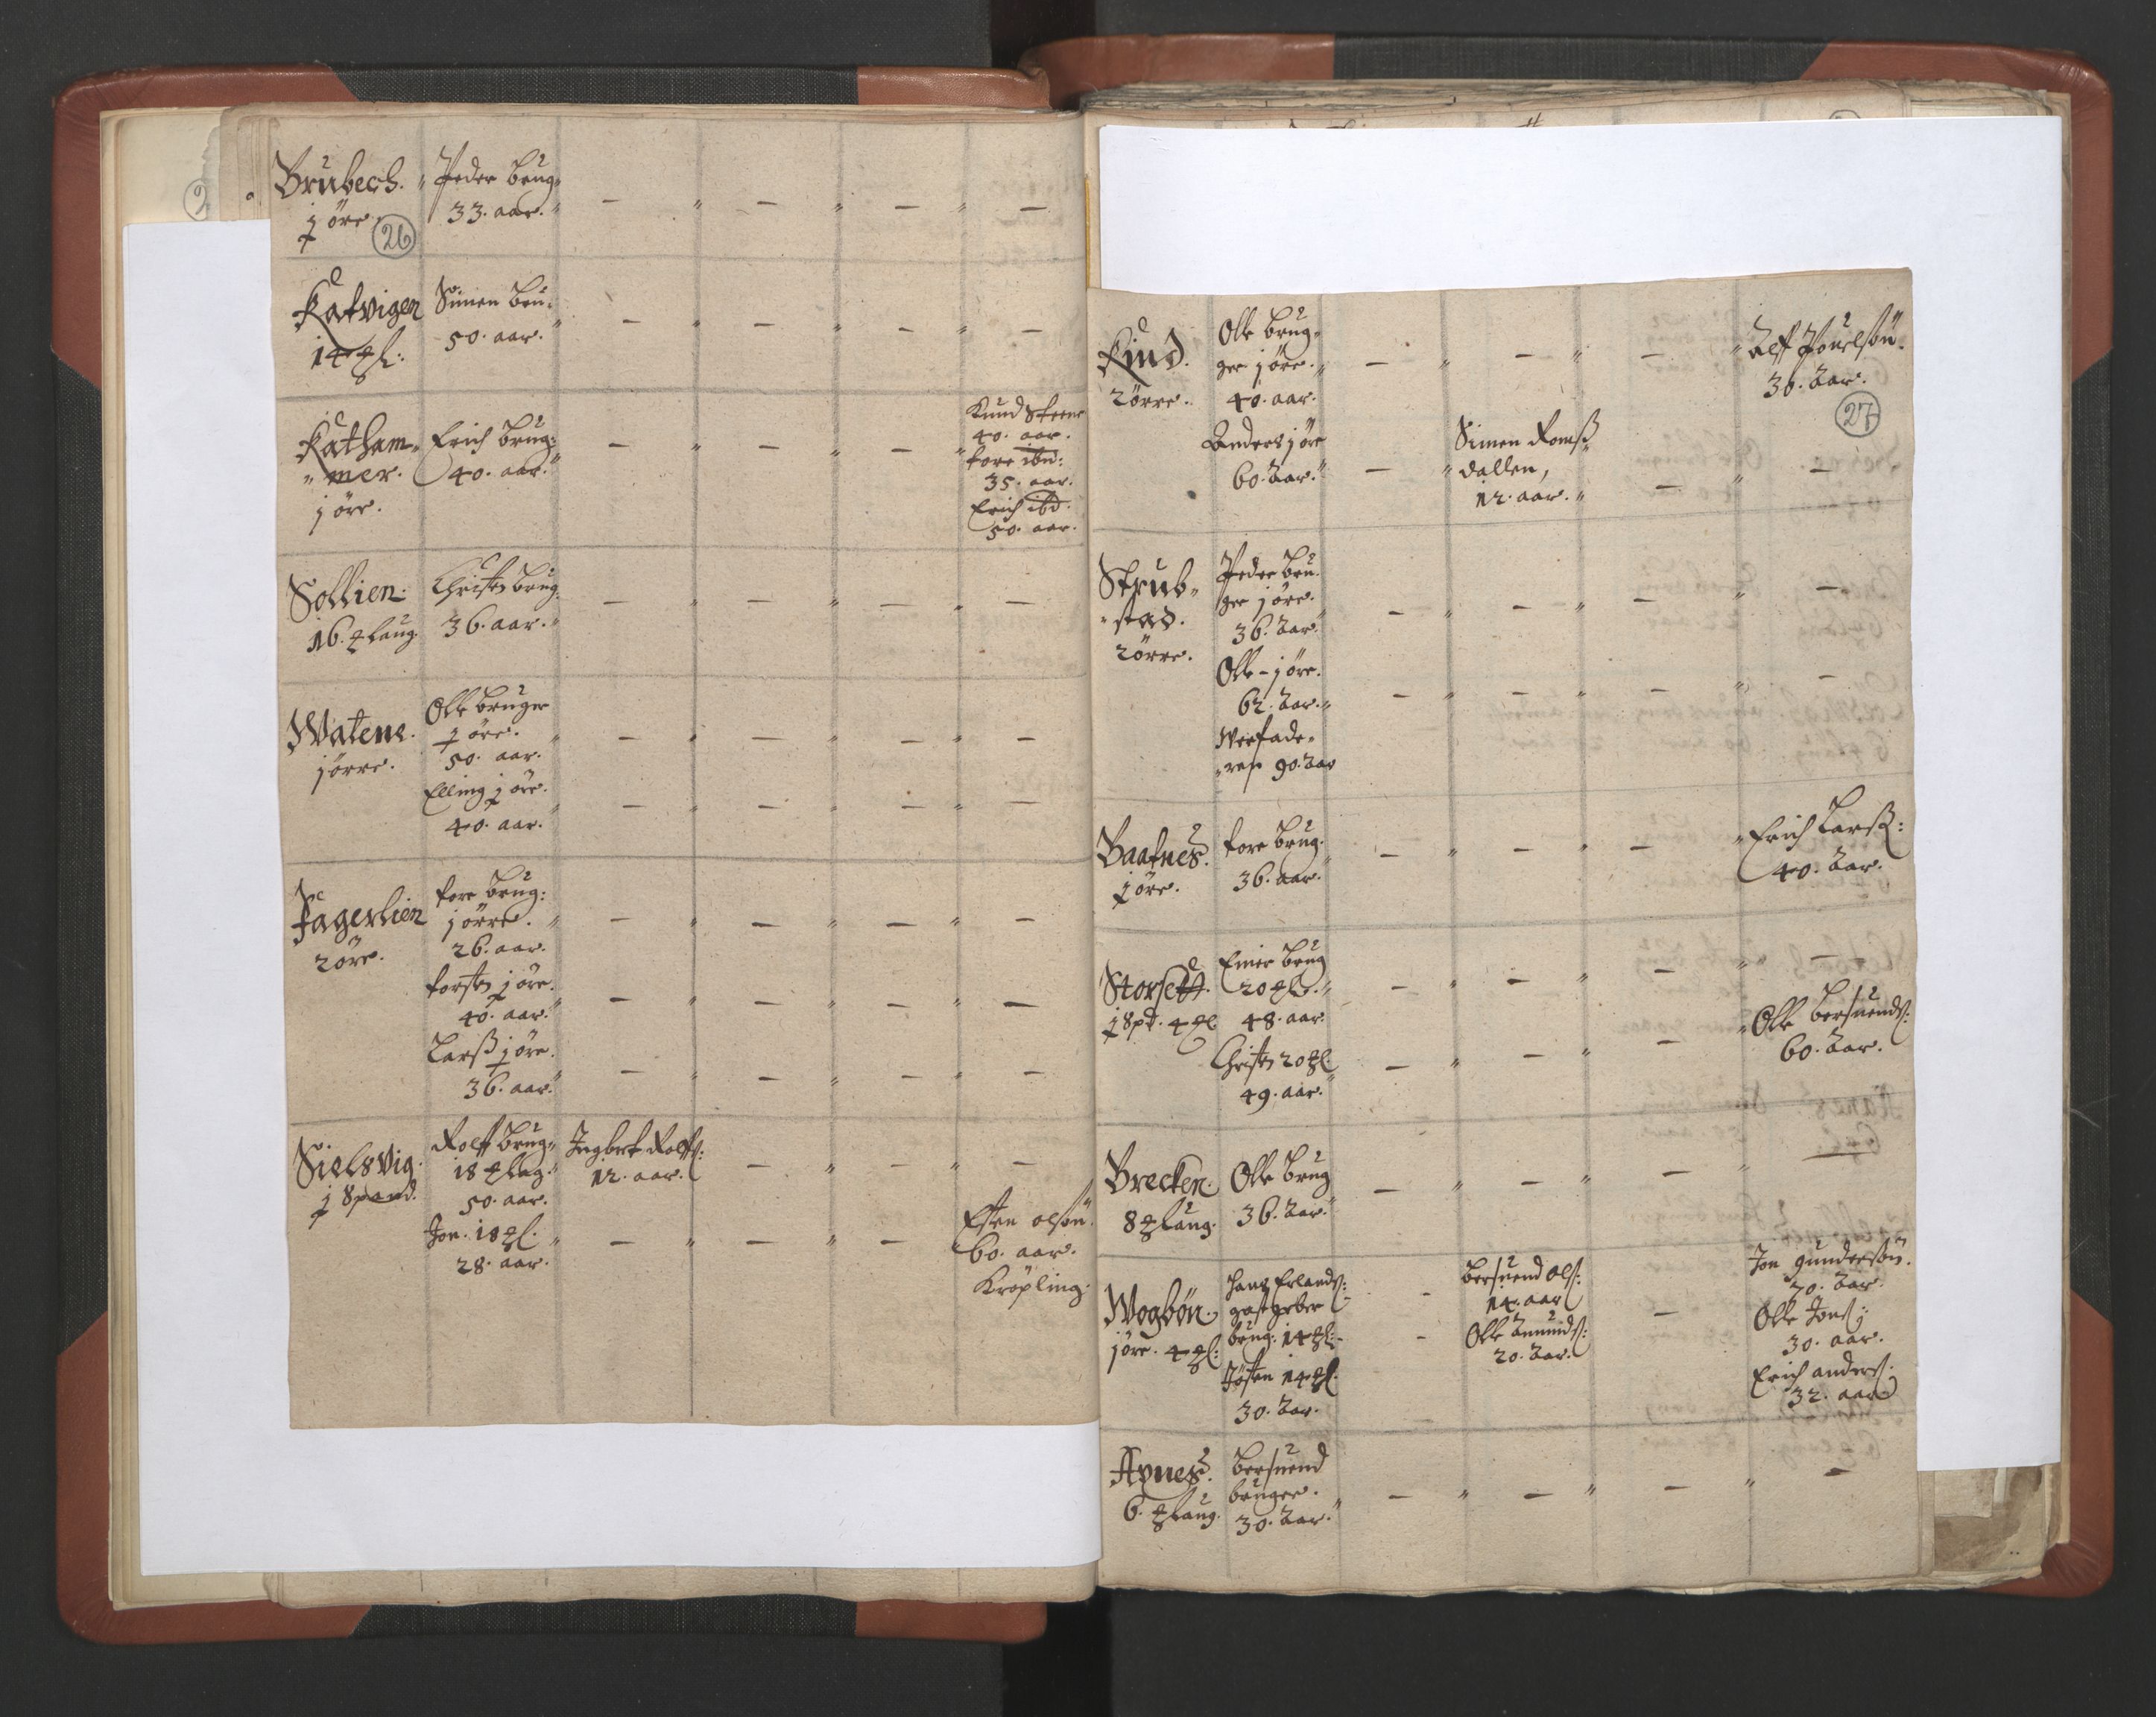 Brubech.
j öre.
26
Peder brug
33. aar.
Katvigen
14 ₰:
Simen bru:
50. aar.
Katham-
mer.
j öre.
Erich brug:
40. aar.
Knud Steene
40. aar.
Tore ibd:
35. aar.
Erich ibd.
50. aar.
Sollien.
16. ₰laug
Christen brug.
36. aar.
Watene.
j örre.
Olle bruger
j öre.
50. aar.
Elling j öre.
40. aar.
Jagerlien
2 öre.
Tore brug:
j örre.
26. aar.
Torsten j öre.
40. aar.
Larß j öre.
36. aar.
Sielsvig.
j Spand.
Rolff brug
18 ₰lag.
50. aar.
Jon. 18 ₰l.
28. aar.
Ingbret Rolffs:
12. aar.
Esten olsøn.
60. aar.
Kröpling.
Kind.
2 örre.
Olle brug-
ger j öre.
40. aar.
Anders j öre
60. Aar.
Simen Romß-
dallen,
12. aar.
Alf Pouelsøn.
30. Aar.
27
Strub-
stad.
2 örre.
Peder bru-
ger j öre.
36. Aar.
Olle - j öre.
62. Aar.
Werfade-
ren 90. Aar
Baatnes.
j öre.
Tore brug.
36. aar.
Erich Larß:
40. Aar.
Storsett.
j Spd. 4 ₰l
Einer brug
20 ₰l.
48. aar.
Christen 20 ₰l.
49. aar.
Olle Bersuends:
60. Aar.
Brecken.
8 ₰laug.
Olle brug
36. Aar.
Wogbøn.
j öre. 4 ₰l:
Hans Erlands:
gastgeber
brug: 14 ₰l:
Jösten 14 ₰l.
30. Aar.
Bersuend Ols:
14. aar
Olle Amunds:
20. Aar.
Jon Gundersøn.
70. Aar.
Olle Jons:
30. aar.
Erich anders:
32. aar
Avnes.
6. ₰laug.
Bersuend
bruger.
30. Aar.